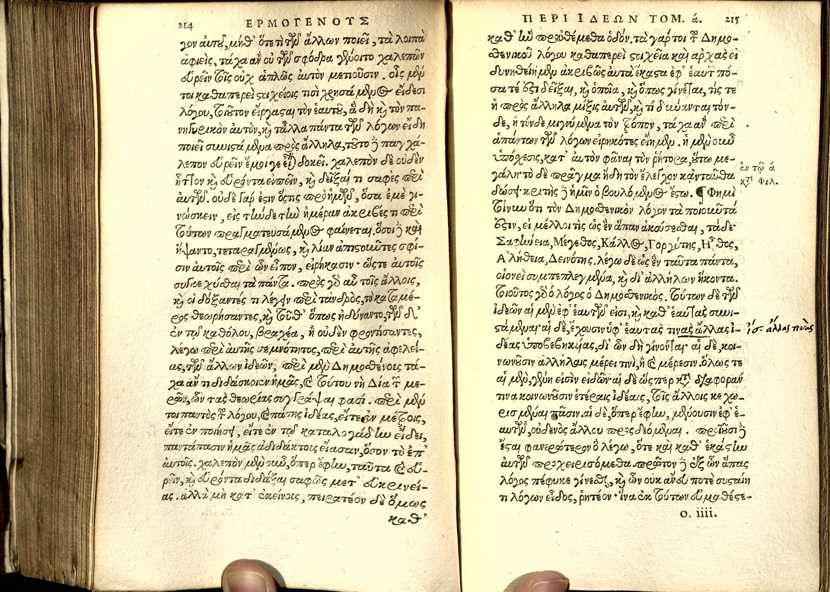 214 ΕΡΜΟΓΕΝΟΥΣ
γον αυτοῦ, μήθ' ὅτε τι τῶν ἄλλων ποιεῖ, τὰ λοιπὰ
ἀφιεὶς, τάχα ἂν οὐ τῶν σφόδρα γένοιτο χαλεπῶν
εὑρεῖν τοῖς οὐχ ἁπλῶς αὐτὸν μετιοῦσιν. οἷς μέν
τοι καθαπερεὶ στοιχείοις τισὶ χρησάμενος εἴδεσι
λόγου, τοιοῦτον εἴργασται τὸν ἑαυτοῦ, ἃ δὴ καὶ τὸν πα-
νηγυρικὸν αὐτὸν, καὶ τἄλλα πάντα τῶν λόγων εἴδη
ποιεῖ συνιστάμενα πρὸς ἄλληλα, τοῦτο καὶ παγχά-
λεπον εὑρεῖν ἔμοιγε δοκεῖ. χαλεπὸν δὲ οὐδὲν
ἧττον καὶ εὑρόντα εἰπεῖν, καὶ δεῖξαί τι σαφὲς περὶ
αὐτῶν. οὐδὲ γάρ ἐστιν ὅστις πρὸ ἡμῶν, ὅσα ἐμὲ γι-
νώσκειν, εἰς τήνδε τὴν ἡμέραν ἀκριβές τι περὶ
τούτων πραγματευσάμενος φαίνεται. ὅσοι καὶ
ἥψαντο, τεταραγμένως, καὶ λίαν ἀπιστοῦντες σφί-
σιν αὐτοῖς περὶ ὧν εἶπον, εἰρήκασιν· ὥστε αὐτοῖς
συγκεχύσθαι τὰ πάντα. πρὸς γὰρ αὖ τοῖς ἄλλοις,
καὶ οἱ δόξαντές τι λέγειν περὶ τἀνδρὸς, τὸ κατὰ μέ-
ρος θεωρήσαντες, καὶ τοῦθ' ὅπως ἠδύναντο, τῶν δ'
ἐν τῷ καθόλου, βραχέα, ἢ οὐδὲν φροντίσαντες,
λέγω περὶ αὐτῆς σεμνότητος, περὶ αὐτῆς ἀφελεί-
ας, τῶν ἄλλων ἰδεῶν, περὶ μὲν Δημοσθένους τά-
χα ἄν τι διδάσκοιεν ἡμᾶς, καὶ τούτου νὴ Δία τῶν με-
ρῶν, ὧν τὰς θεωρίας συγγράψαι φασί. περὶ μέν
τοι παντὸς τοῦ λόγου, καὶ πάσης ἰδέας, εἴτε ἐν μέτροις,
εἴτε ἐν ποιήσει, εἴτε ἐν τῷ καταλογάδην εἴδει,
παντάπασιν ἡμᾶς ἀδιδάκτους εἴασαν, ὅσον τὸ ἐπ'
αὐτοῖς. χαλεπὸν μὲν οὖν, ὅπερ ἔφην, ταῦτα καὶ εὑ-
ρεῖν, καὶ εὑρόντα διδάξαι σαφῶς μετ' εὐκρινεί-
ας. ἀλλὰ μὴ κατ' ἐκείνους, πειρατέον δὲ ὅμως
καθ'
ΠΕΡΙ ΙΔΕΩΝ ΤΟΜ. ά. 215
καθ' ἣν προὐθέμεθα ὁδόν. τὰ γάρ τοι τοῦ Δημο-
σθενικοῦ λόγου καθαπερεὶ στοιχεῖα καὶ ἀρχὰς εἰ
δυνηθείημεν ἀκριβῶς αὐτὰ ἕκαστα ἐφ' ἑαυτῶν πό-
σα τέ ἐστι δεῖξαι, καὶ ὁποῖα, καὶ ὅπως γίνεται, τίς τε
ἡ πρὸς ἄλληλα μίξις αὐτῶν, καὶ τί δύνανται τόν-
δε, ἢ τόνδε μιγνύμενα τὸν τρόπον, τάχα ἂν περὶ
ἁπάντων τῶν λόγων εἰρηκότες εἴημεν. ἡ μὲν οὖν
ὑπόσχεσις, κατ' αὐτὸν φάναι τὸν ῥήτορα, οὕτω με-
γάλη· τὸ δὲ πρᾶγμα ἤδη τὸν ἔλεγχον κἀνταῦθα
δώσει· κριτὴς δ' ἡμῖν ὁ βουλόμενος ἔστω. ¶ Φημὶ
τοίνυν ὅτι τὸν Δημοσθενικὸν λόγον τὰ ποιοῦντά
ἐστιν, εἰ μέλλοι τις ὡς ἓν ἅπαν ἀκούσεσθαι, τάδε·
Σαφήνεια, Μέγεθος, Κάλλος, Γοργότης, Ἦθος,
Ἀλήθεια, Δεινότης. λέγω δὲ ὡς ἓν ταῦτα πάντα,
οἱονεὶ συμπεπλεγμένα, καὶ δι' ἀλλήλων ἥκοντα.
τοιοῦτος γὰρ ὁ λόγος ὁ Δημοσθενικός. τούτων δὲ τῶν
ἰδεῶν αἱ μὲν ἐφ' ἑαυτῶν εἰσι, καὶ καθ' ἑαυτὰς συνι-
στάμεναι· αἱ δὲ, ἔχουσιν ὑφ' ἑαυτὰς τινας ἄλλας ἰ-
δέας ὑποβεβηκυίας, δι' ὧν δὴ γίνονται· αἱ δὲ, κοι-
νωνοῦσιν ἀλλήλαις μέρει τινὶ, ἢ καὶ μέρεσιν. ὅλως τε
αἱ μὲν, γένη εἰσὶν εἰδῶν· αἱ δὲ ὥσπερ κατὰ διαφοράν
τινα κοινωνοῦσιν ἑτέραις ἰδέαις, τοῖς ἄλλοις κεχω-
ρισμέναι πᾶσιν. αἱ δὲ, ὅπερ ἔφην, μένουσιν ἐφ' ἑ-
αυτῶν, οὐδενὸς ἄλλου προσδεόμεναι. προϊοῦσι δ'
ἔσται φανερώτερον ὃ λέγω, ὅτε καὶ καθ' ἑκάστην
αὐτῶν προχειριζόμεθα. πρῶτον δ' ἐξ ὧν ἅπας
λόγος πέφυκε γίνεσθαι, καὶ ὧν οὐκ ἄνευ ποτὲ συσταίη
τι λόγων εἶδος, ῥητέον· ἵνα ἐκ τούτων εὐμαθέστε-
O. iiii.
ἐν τῷ ά
κτ Φιλ.